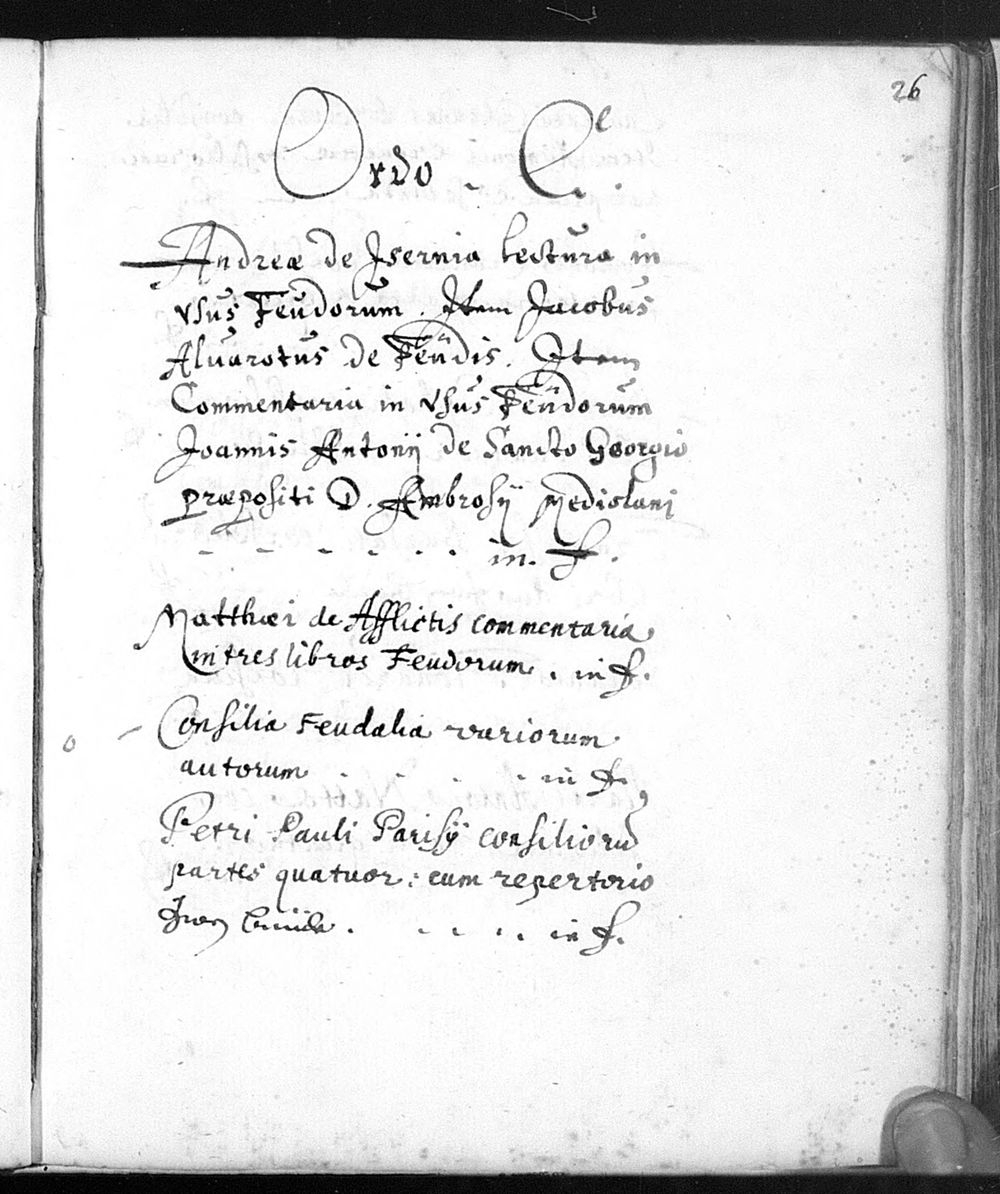 26
Ordo - C.
Andreæ de Isernia lectura in
vsus Feudorum. Item Jacobus
Aluarotus de Feudis. Item
Commentaria in vsus Feudorum
Joannis Antonij de Sancto Georgio
præpositi D. Ambrosij Mediolani
- - - - . . in. f.
Matthæi de Afflictis commentaria
in tres libros Feudorum. in f.
Consilia Feudalia variorum
autorum . . . . in f.
Petri Pauli Parisij consiliorū
partes quatuor: cum repertorio
. . . . . in f.